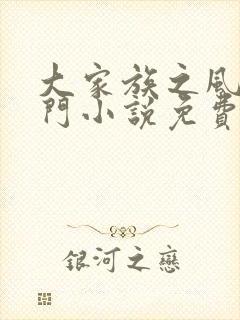 大家族之風
門小說免費
銀河之戀